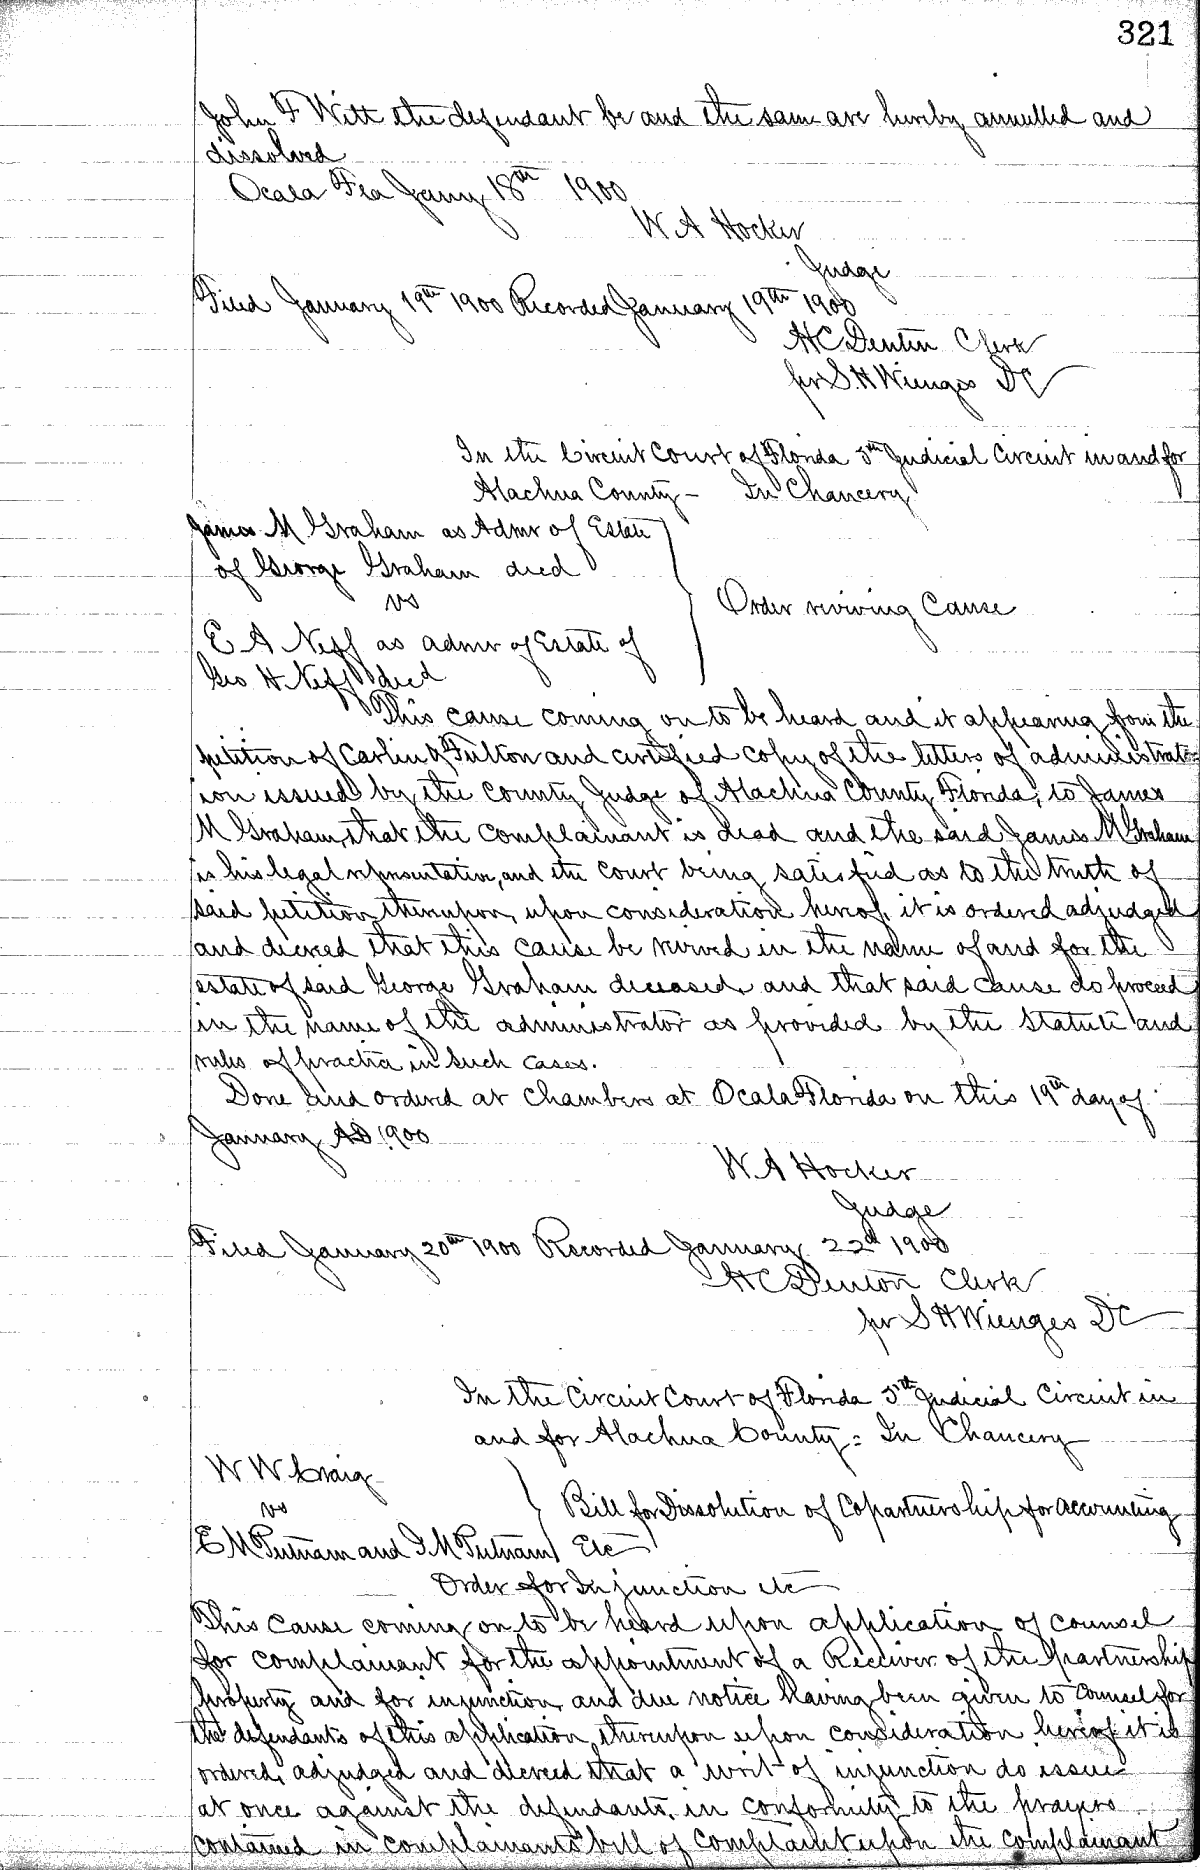 321
John F Witt the defendant be and the same are hereby annulled and
dissolved
Ocala Fla Jany 18th 1900
W A Hocker
Judge
Filed January 19th 1900 Recorded January 19th 1900
H C Denton Clerk
per S. H Wienges DC
In the Circuit Court of Florida 5th Judicial Circuit in and for
Alachua County - In Chancery
James M Graham as Admr of Estate
of George Graham decd
vs
Order reviving Cause
E A Neff as admr of Estate of
Geo H Neff decd
This cause coming on to be heard and it appearing from the
petition of Carlin & Fulton and certified copy of the letters of administrat-
ion issued by the County Judge of Alachua County Florida, to James
M Graham, that the complainant is dead and the said James M Graham
is his legal representative, and the court being satisfied as to the truth of
said petition, thereupon, upon consideration hereof, it is ordered adjudged
and decreed that this cause be revived in the name of and for the
estate of said George Graham deceased, and that said cause do proceed
in the name of the administrator as provided by the Statute and
rules of practice in such cases.
Done and ordered at Chambers at Ocala Florida on this 19th day of
January AD 1900
W A Hocker
Judge
Filed January 20th 1900 Recorded January 22d 1900
H C Denton Clerk
per S H Wienges DC
In the Circuit Court of Florida 5th Judicial Circuit in
and for Alachua County = In Chancery
W W Craig
vs
Bill for Dissolution of Copartnership for accounting
E M Putnam and I M Putnam Etc
Order for Injunction etc
This Cause coming on to be heard upon application of counsel
for complainant for the appointment of a Receiver of the partnership
property and for injunction, and due notice having been given to Counsel for
the defendants of this application, thereupon upon consideration hereof it is
ordered, adjudged and decreed that a writ of injunction do issue
at once against the defendants, in conformity to the prayers
contained in complainants bill of complaint upon the complainant